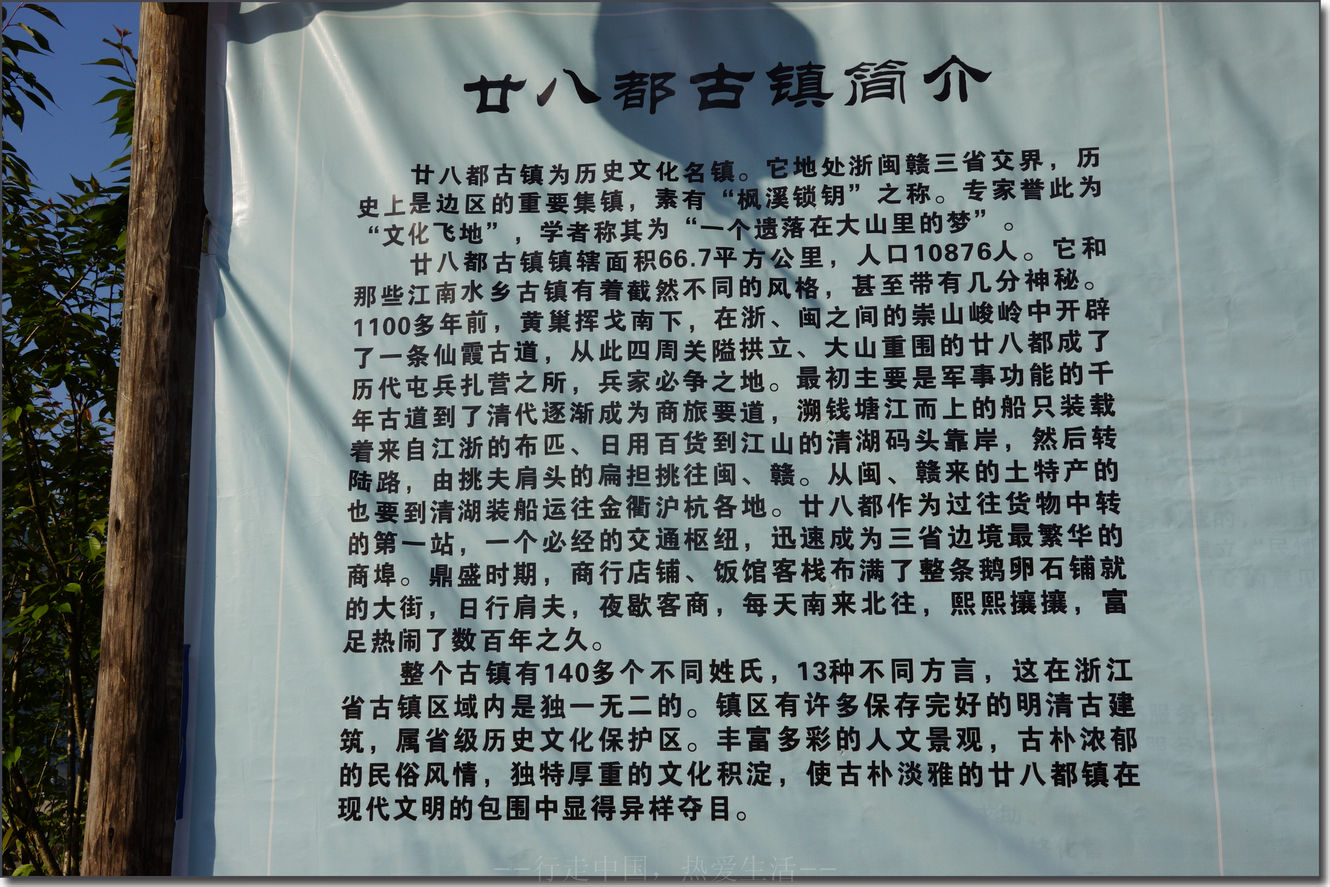 廿八都古镇简介
廿八都古镇为历史文化名镇。它地处浙闽赣三省交界，历
史上是边区的重要集镇，素有“枫溪锁钥”之称。专家誉此为
“文化飞地”，学者称其为“一个遗落在大山里的梦”。
廿八都古镇镇辖面积66.7平方公里，人口10876人。它和
那些江南水乡古镇有着截然不同的风格，甚至带有几分神秘。
1100多年前，黄巢挥戈南下，在浙、闽之间的崇山峻岭中开辟
了一条仙霞古道，从此四周关隘拱立、大山重围的廿八都成了
历代屯兵扎营之所，兵家必争之地。最初主要是军事功能的千
年古道到了清代逐渐成为商旅要道，溯钱塘江而上的船只装载
着来自江浙的布匹、日用百货到江山的清湖码头靠岸，然后转
陆路，由挑夫肩头的扁担挑往闽、赣。从闽、赣来的土特产的
也要到清湖装船运往金衢沪杭各地。廿八都作为过往货物中转
的第一站，一个必经的交通枢纽，迅速成为三省边境最繁华的
商埠。鼎盛时期，商行店铺、饭馆客栈布满了整条鹅卵石铺就
的大街，日行肩夫，夜歇客商，每天南来北往，熙熙攘攘，富
足热闹了数百年之久。
整个古镇有140多个不同姓氏，13种不同方言，这在浙江
省古镇区域内是独一无二的。镇区有许多保存完好的明清古建
筑，属省级历史文化保护区。丰富多彩的人文景观，古朴浓郁
的民俗风情，独特厚重的文化积淀，使古朴淡雅的廿八都镇在
现代文明的包围中显得异样夺目。
——行走中国，热爱生活——